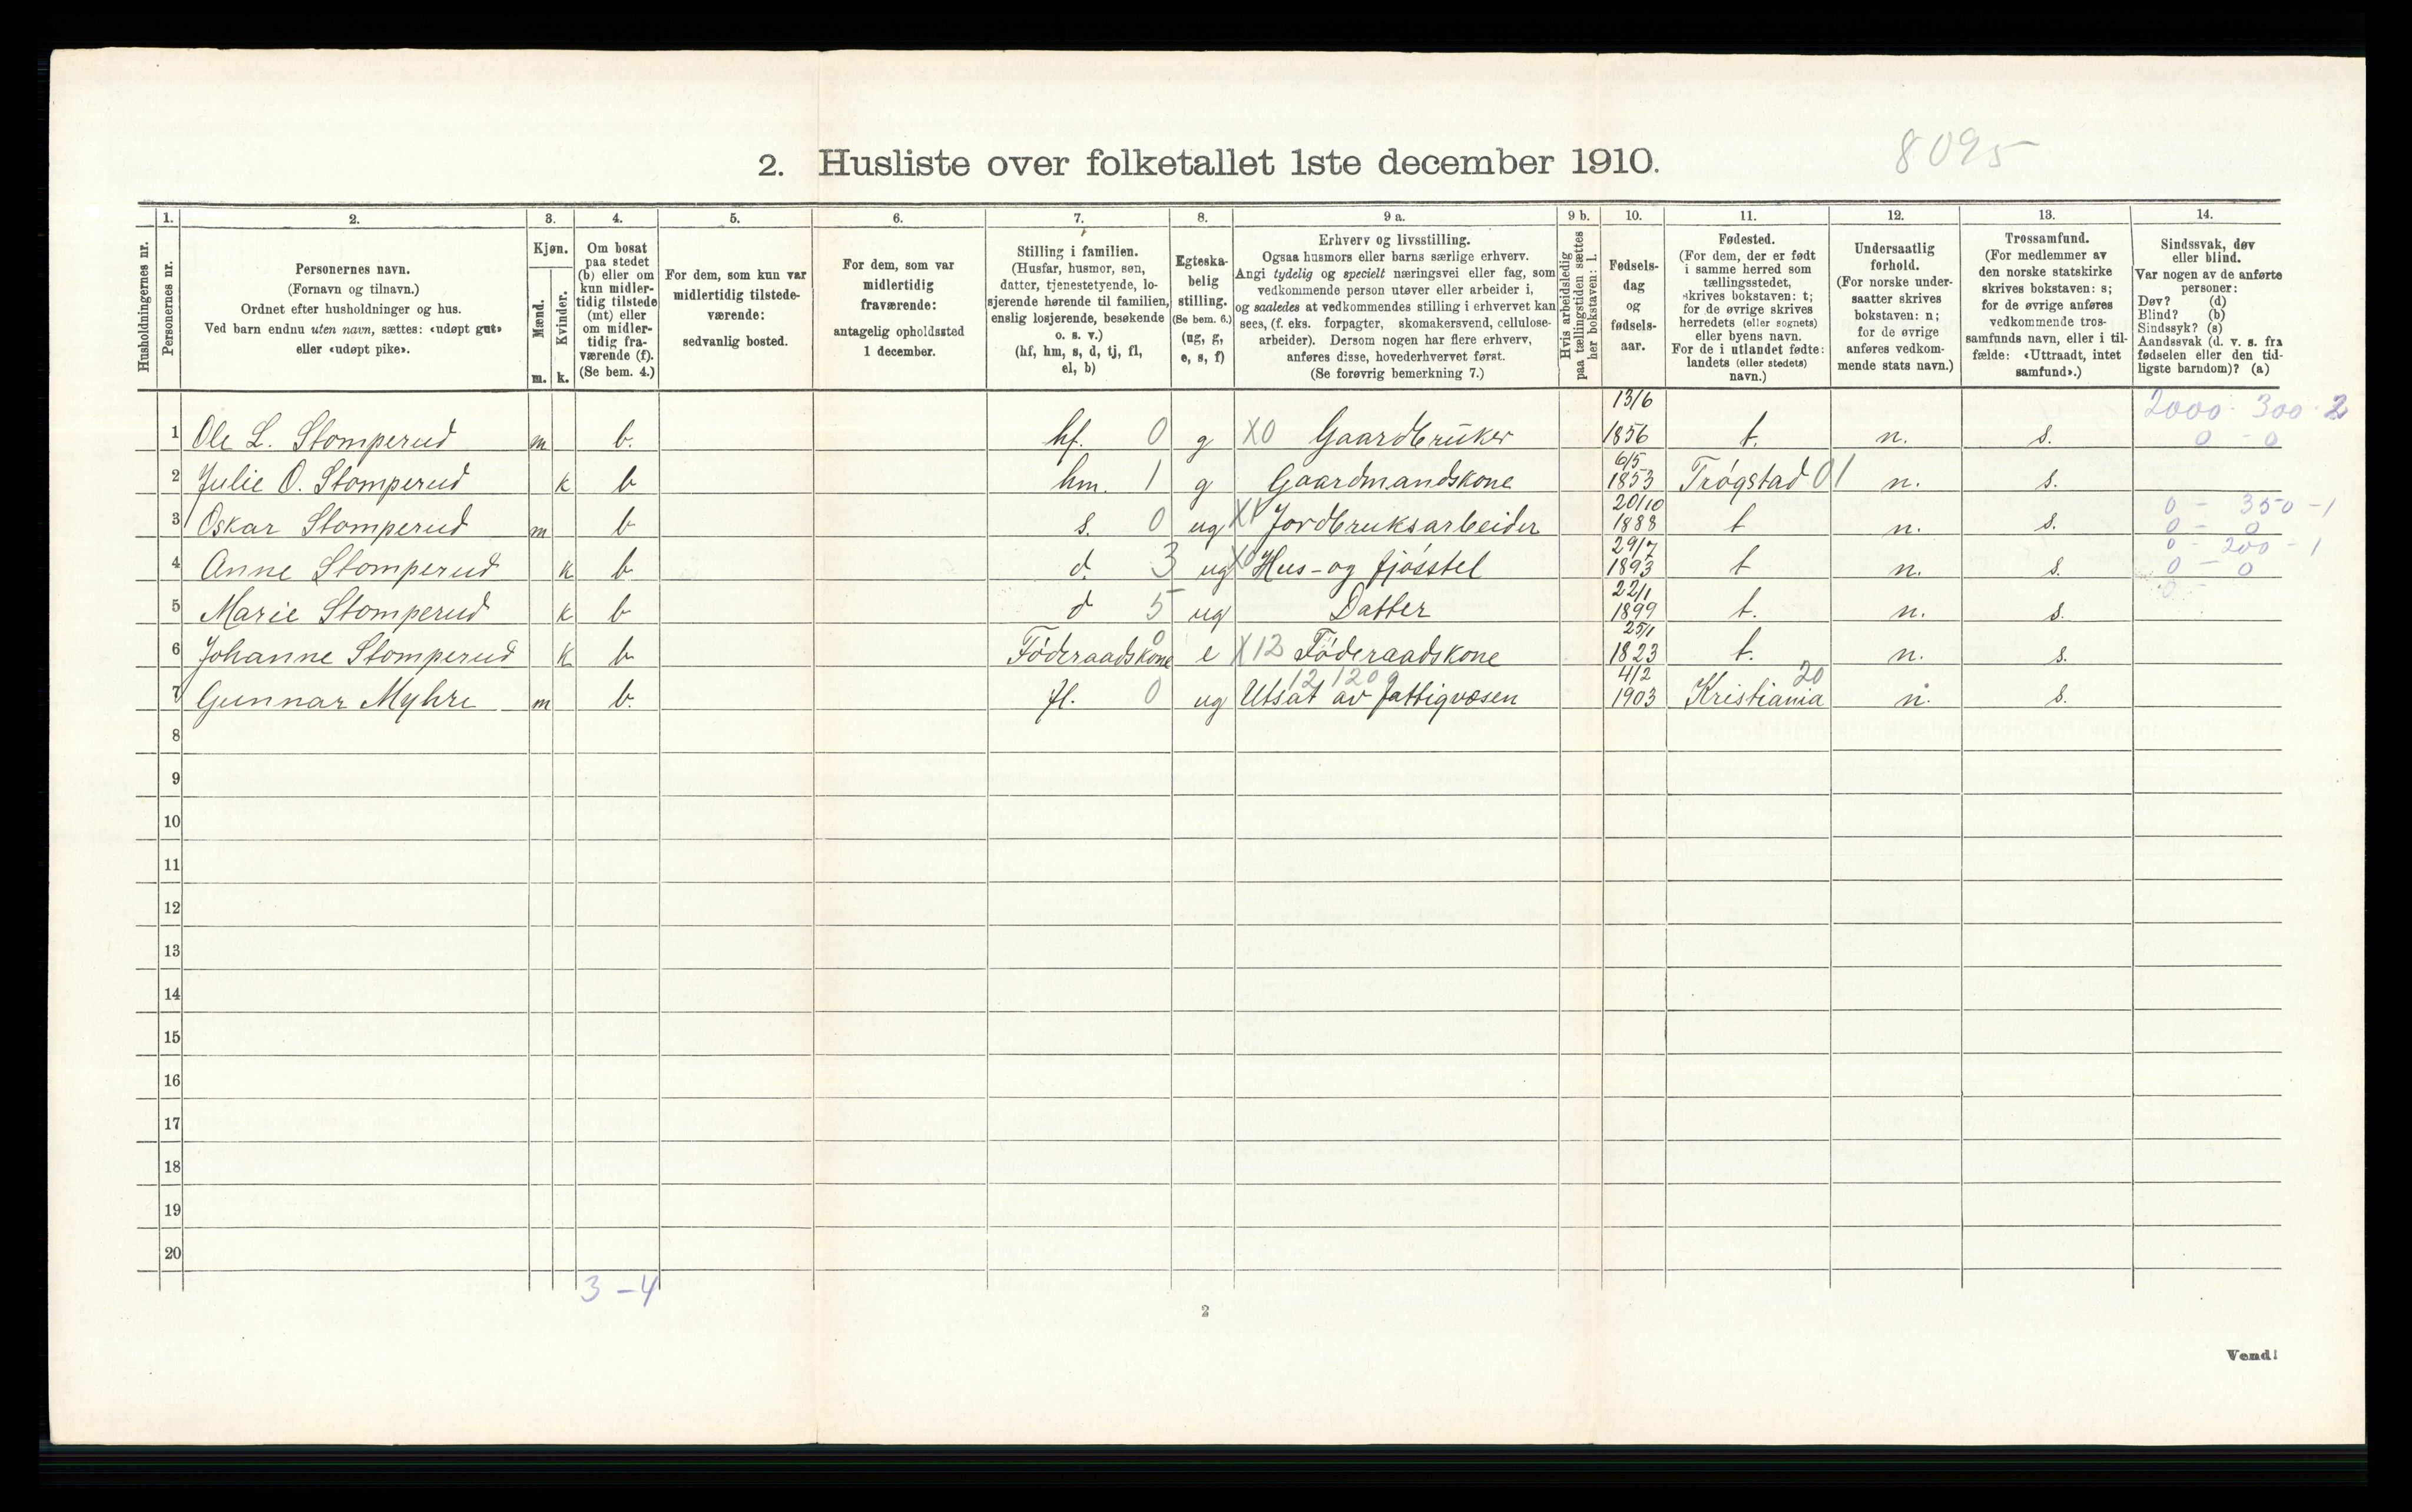 8095
2. Husliste over folketallet 1ste december 1910.
Husholdningernes nr.
1.
Personernes nr.
2.
Personernes navn.
(Fornavn og tilnavn.)
Ordnet efter husholdninger og hus.
Ved barn endnu uten navn, sættes: «udøpt gut»
eller «udøpt pike».
3.
Kjøn.
Mænd.
m.
Kvinder.
k.
4.
Om bosat
paa stedet
(b) eller om
kun midler-
tidig tilstede
(mt) eller
om midler-
tidig fra-
værende (f).
(Se bem. 4.)
5.
For dem, som kun var
midlertidig tilstede-
værende:
sedvanlig bosted.
6.
For dem, som var
midlertidig
fraværende:
antagelig opholdssted
1 december.
7.
Stilling i familien.
(Husfar, husmor, søn,
datter, tjenestetyende, lo-
sjerende hørende til familien,
enslig losjerende, besøkende
o. s. v.)
(hf, hm, s, d, tj, fl,
el, b)
8.
Egteska-
belig
stilling.
(Se bem. 6.)
(ug, g,
e, s, f)
9 a.
Erhverv og livsstilling.
Ogsaa husmors eller barns særlige erhverv.
Angi tydelig og specielt næringsvei eller fag, som
vedkommende person utøver eller arbeider i,
og saaledes at vedkommendes stilling i erhvervet kan
sees, (f. eks. forpagter, skomakersvend, cellulose-
arbeider). Dersom nogen har flere erhverv,
anføres disse, hovederhvervet først.
(Se forøvrig bemerkning 7.)
9 b.
Hvis arbeidsledig
paa tællingstiden sættes
her bokstaven: l.
10.
Fødsels-
dag
og
fødsels-
aar.
11.
Fødested.
(For dem, der er født
i samme herred som
tællingsstedet,
skrives bokstaven: t;
for de øvrige skrives
herredets (eller sognets)
eller byens navn.
For de i utlandet fødte:
landets (eller stedets)
navn.)
12.
Undersaatlig
forhold.
(For norske under-
saatter skrives
bokstaven: n;
for de øvrige
anføres vedkom-
mende stats navn.)
13.
Trossamfund.
(For medlemmer av
den norske statskirke
skrives bokstaven: s;
for de øvrige anføres
vedkommende tros-
samfunds navn, eller i til-
fælde: «Uttraadt, intet
samfund».)
14.
Sindssvak, døv
eller blind.
Var nogen av de anførte
personer:
Døv? (d)
Blind? (b)
Sindssyk? (s)
Aandssvak (d. v. s. fra
fødselen eller den tid-
ligste barndom)? (a)
13/6 2000 - 300 - 2
1 Ole L. Stomperud m b. hf. 0 g X0 Gaardbruker 1856 t. n. s. 0 - 0
6/5
2 Julie O. Stomperud k b hm. 1 g Gaardmandskone 1853 Trøgstad 01 n. s.
20/10 0 - 350 - 1
3 Oskar Stomperud m b s. 0 ug X1 Jordbruksarbeider 1888 t n. s. 0 - 0
29/7 0 - 200 - 1
4 Anne Stomperud k b d. 3 ug X0 Hus- og fjøsstel 1893 t n. s. 0 - 0
22/1 0 -
5 Marie Stomperud k b d 5 ug Datter 1899 t. n. s.
25/1
6 Johanne Stomperud k b Føderaadskone 0 e X12 Føderaadskone 1823 t. n. s.
12 120 4/2 20
7 Gunnar Myhre m b. fl. 0 ug Utsat av fattigvæsen 1903 Kristiania n. s.
8
9
10
11
12
13
14
15
16
17
18
19
20
3 - 4
2
Vend!